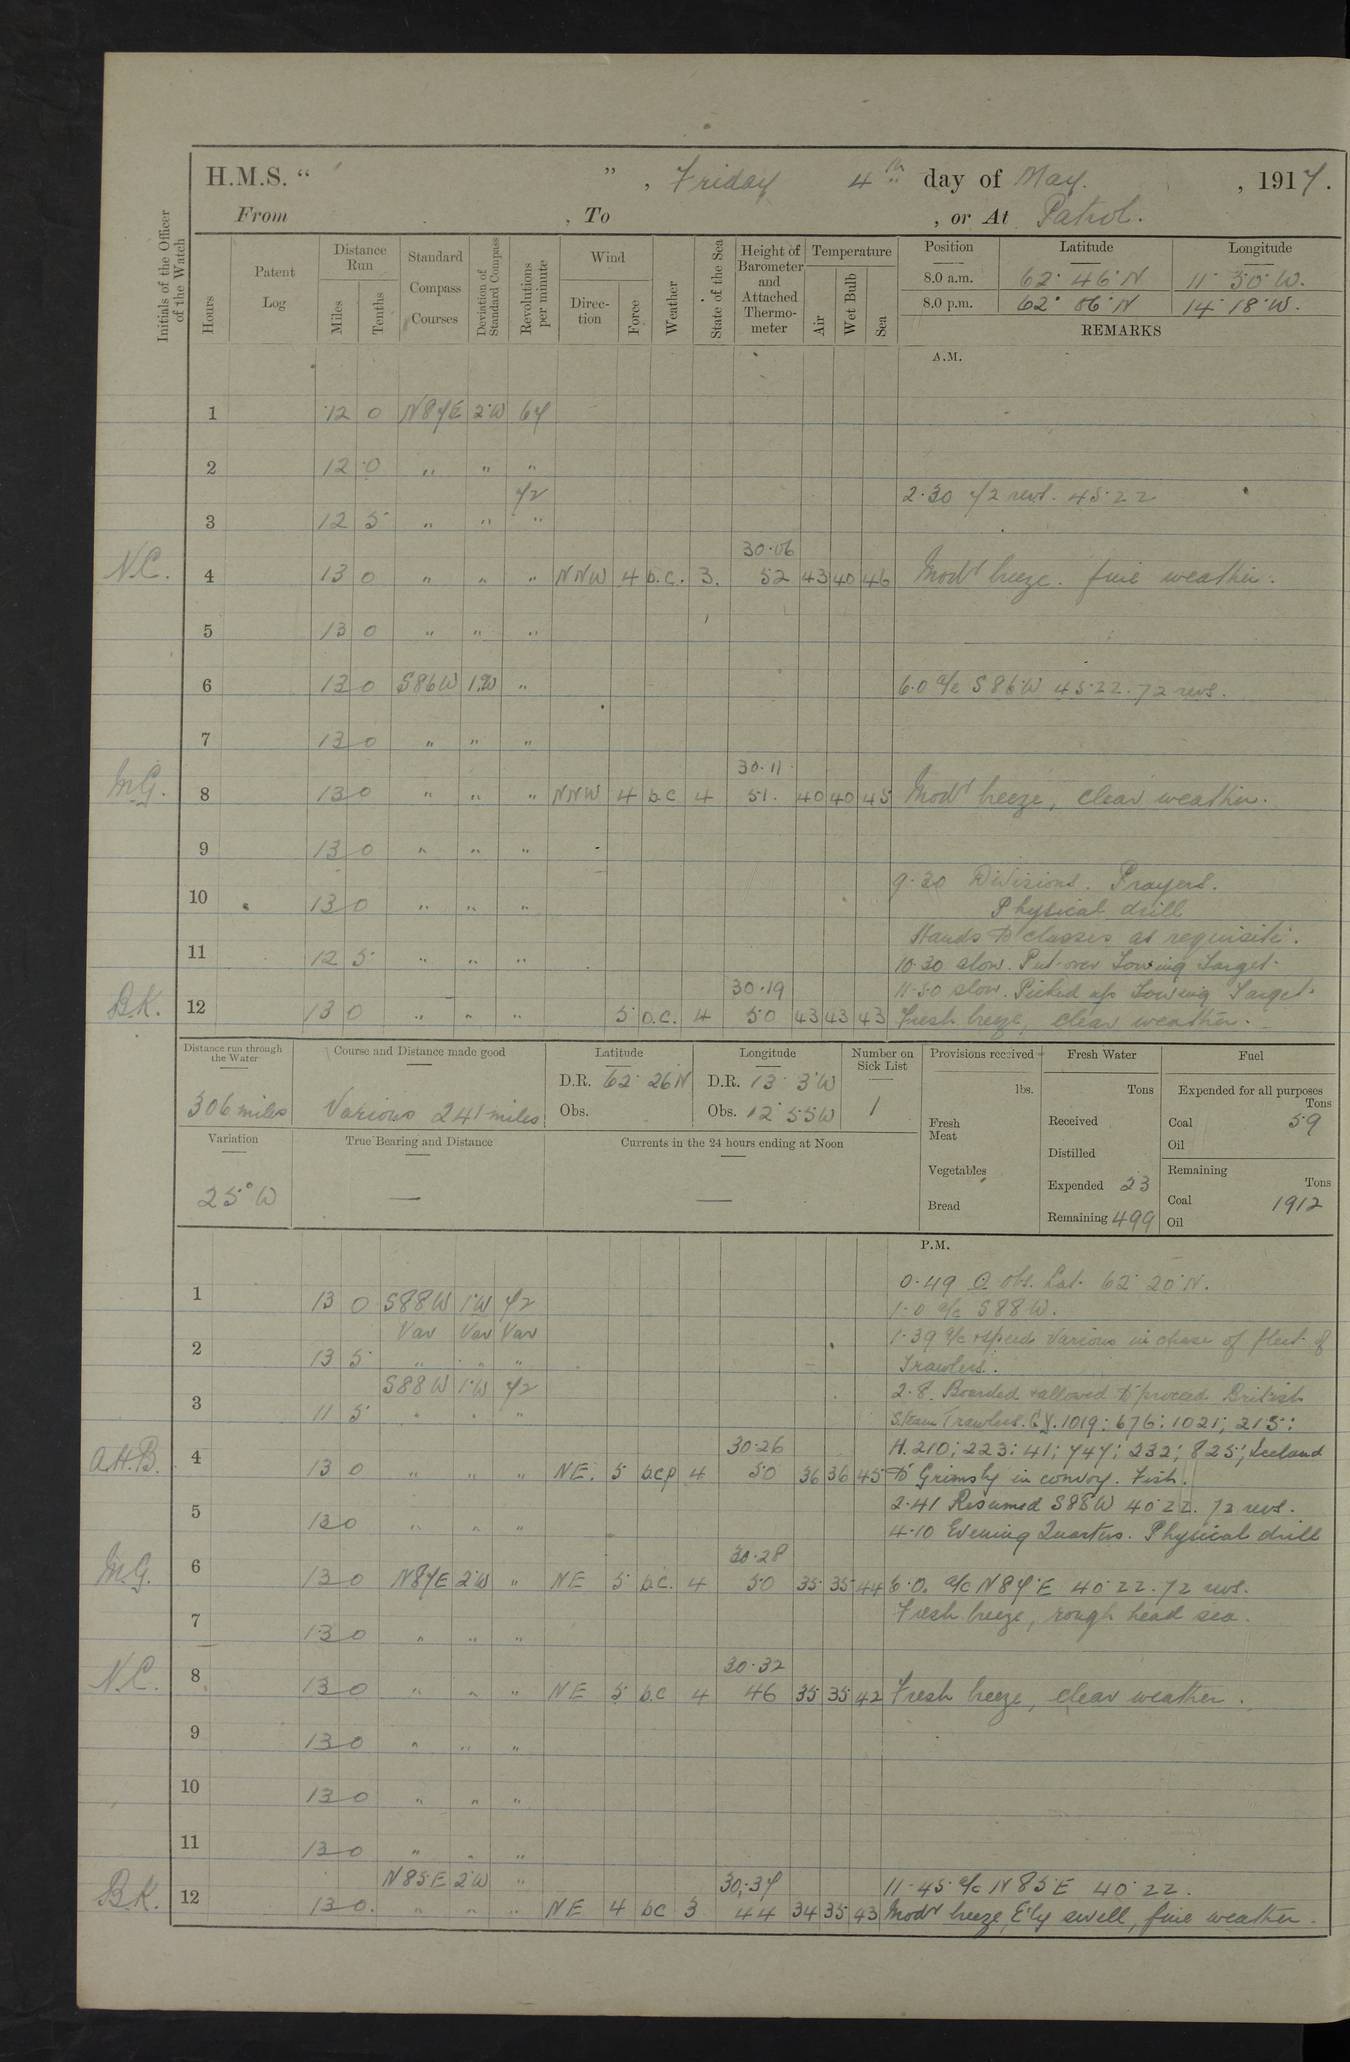 H.M.S. “ ” , Friday 4th day of May. , 1917.
From , To , or At Patrol.
Initials of the Officer of the Watch
Hours
Patent Log
Distance Run
Miles
Tenths
Standard Compass Courses
Deviation of Standard Compass
Revolutions per minute
Wind
Direction
Force
Weather
State of the Sea
Height of Barometer and Attached Thermometer
Temperature
Air
Wet Bulb
Sea
Position Latitude Longitude
8.0 a.m. 62° 46' N 11° 30' W.
8.0 p.m. 62° 06' N 14° 18' W.
REMARKS
A.M.
1 12 0 N87E 2°W 67
2 12 0 „ „ „
72 2.30 72 revs. 45.22
3 12 5 „ „ „
30.06
N.C. 4 13 0 „ „ „ NNW 4 b.c. 3. 52 43 40 46 Modt breeze. fine weather.
5 13 0 „ „ „
6 13 0 S86W 1°W „ 6.0 a/c S86°W 45.22. 72 revs.
7 13 0 „ „ „
30.11
M.G. 8 13 0 „ „ „ NNW 4 b.c 4 51. 40 40 45 Modt breeze, clear weather.
9 13 0 „ „ „
9.30 Divisions. Prayers.
10 13 0 „ „ „ Physical drill
Hands to classes as requisite.
11 12 5 „ „ „ 10.30 slow. Put over Towing Target.
30.19 11.50 slow. Picked up Towing Target.
B.K. 12 13 0 „ „ „ 5 b.c. 4 50 43 43 43 Fresh breeze, clear weather.
Distance run through the Water
306 miles
Course and Distance made good
Various 241 miles
Latitude
D.R. 62° 26' N
Obs.
Longitude
D.R. 13° 3' W
Obs. 12° 55 W
Number on Sick List
1
Variation
25° W
True Bearing and Distance
—
Currents in the 24 hours ending at Noon
—
Provisions received
lbs.
Fresh Meat
Vegetables
Bread
Fresh Water
Tons
Received
Distilled
Expended 23
Remaining 499
Fuel
Expended for all purposes
Tons
Coal 59
Oil
Remaining
Tons
Coal 1912
Oil
P.M.
0.49 O obs. Lat. 62° 20' N.
1 13 0 S88W 1°W 72 1.0 a/c S88W.
Var Var Var 1.39 a/c + speeds various in chase of fleet of
2 13 5 „ „ „ Trawlers.
S88W 1°W 72 2.8. Boarded + allowed to proceed British
3 11 5 „ „ „ Steam Trawlers. G.Y. 1019; 676; 1021; 215;
30.26 H. 210; 223; 41; 747; 232; 825; Iceland
A.H.B. 4 13 0 „ „ „ NE. 5 b.c.p 4 50 36 36 45 to Grimsby in convoy. Fish.
2.41 Resumed S88W 40.22. 72 revs.
5 13 0 „ „ „ 4.10 Evening Quarters. Physical drill
30.28
M.G. 6 13 0 N87E 2°W „ NE 5 b.c. 4 50 35 35 44 6.0. a/c N87°E 40.22. 72 revs.
Fresh breeze, rough head sea.
7 13 0 „ „ „
30.32
N.C. 8 13 0 „ „ „ NE 5 b.c 4 46 35 35 42 Fresh breeze, clear weather.
9 13 0 „ „ „
10 13 0 „ „ „
11 13 0 „ „ „
N85E 2°W „ 30.37 11.45 a/c N85°E 40.22.
B.K. 12 13 0. „ „ „ NE 4 bc 3 44 34 35 43 Modt breeze, E'ly swell, fine weather.